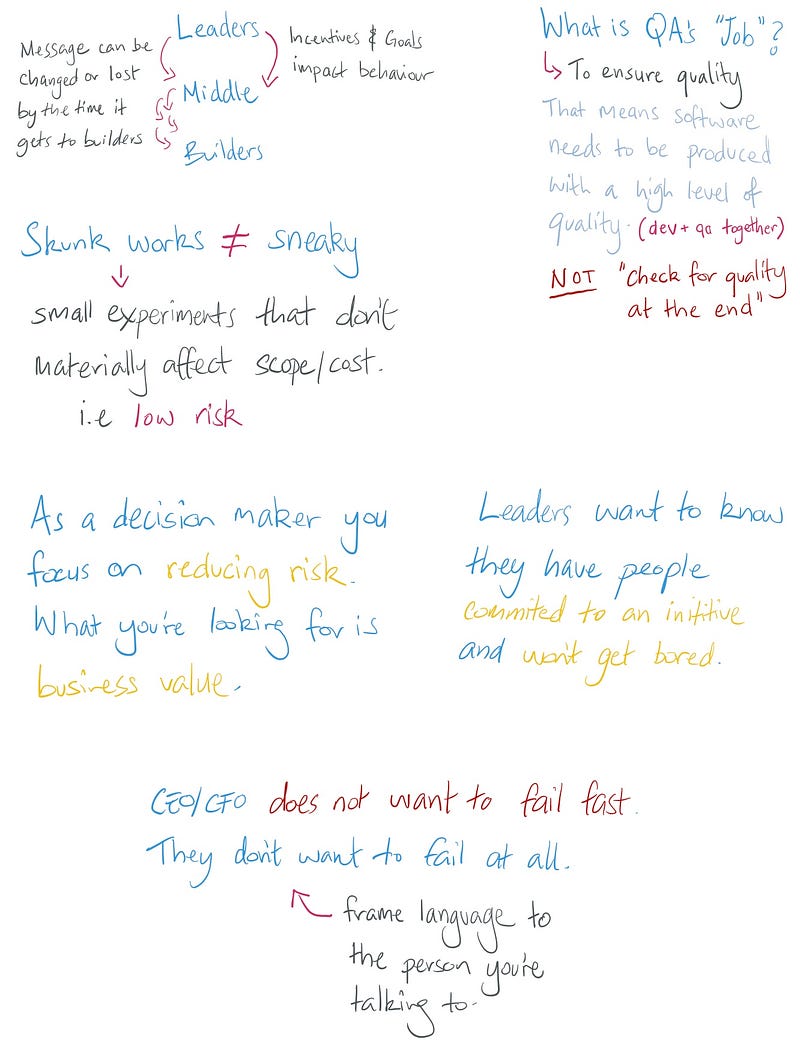 Leaders
Message can be
changed or lost
by the time it
gets to builders
Incentives & Goals
impact behaviour
Middle
Builders
What is QA's "Job"?
To ensure quality
That means software
needs to be produced
with a high level of
quality. (dev + qa together)
NOT "check for quality
at the end"
Skunk works ≠ sneaky
small experiments that don't
materially affect scope/cost.
i.e low risk
As a decision maker you
focus on reducing risk.
What you're looking for is
business value.
Leaders want to know
they have people
commited to an inititive
and won't get bored.
CEO/CFO does not want to fail fast.
They don't want to fail at all.
frame language to
the person you're
talking to.